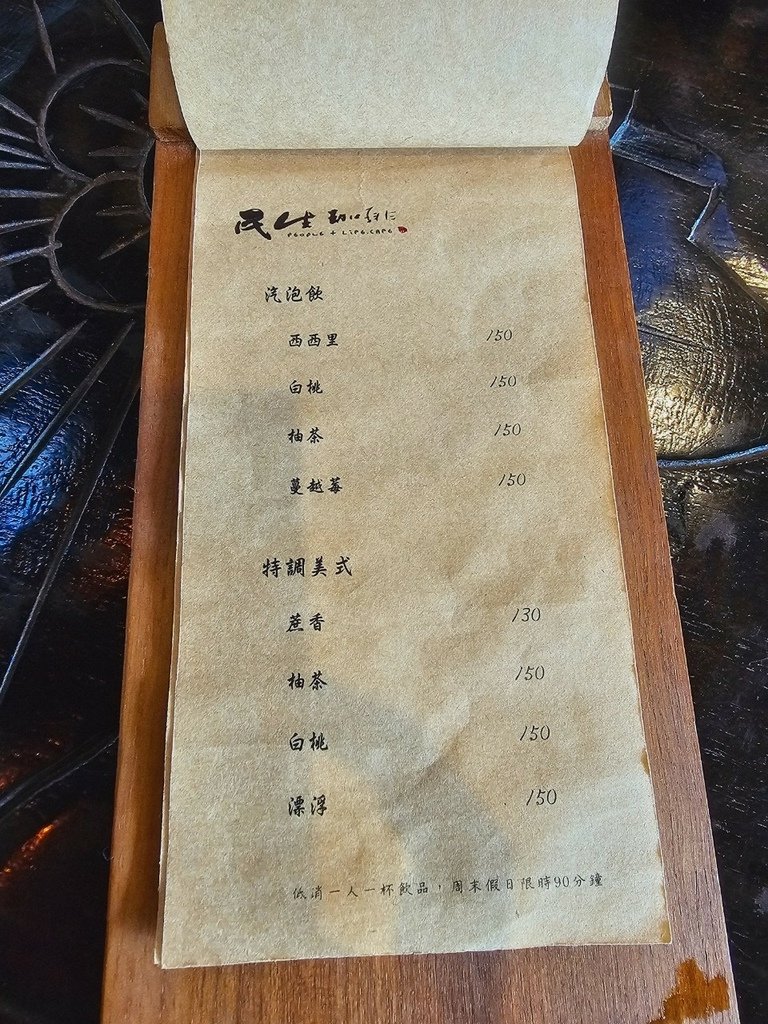 民生 咖啡
PEOPLE + LIFE.CAFE
汽泡飲
西西里 150
白桃 150
柚茶 150
蔓越莓 150
特調美式
蔗香 130
柚茶 150
白桃 150
漂浮 150
低消一人一杯飲品，周末假日限時90分鐘